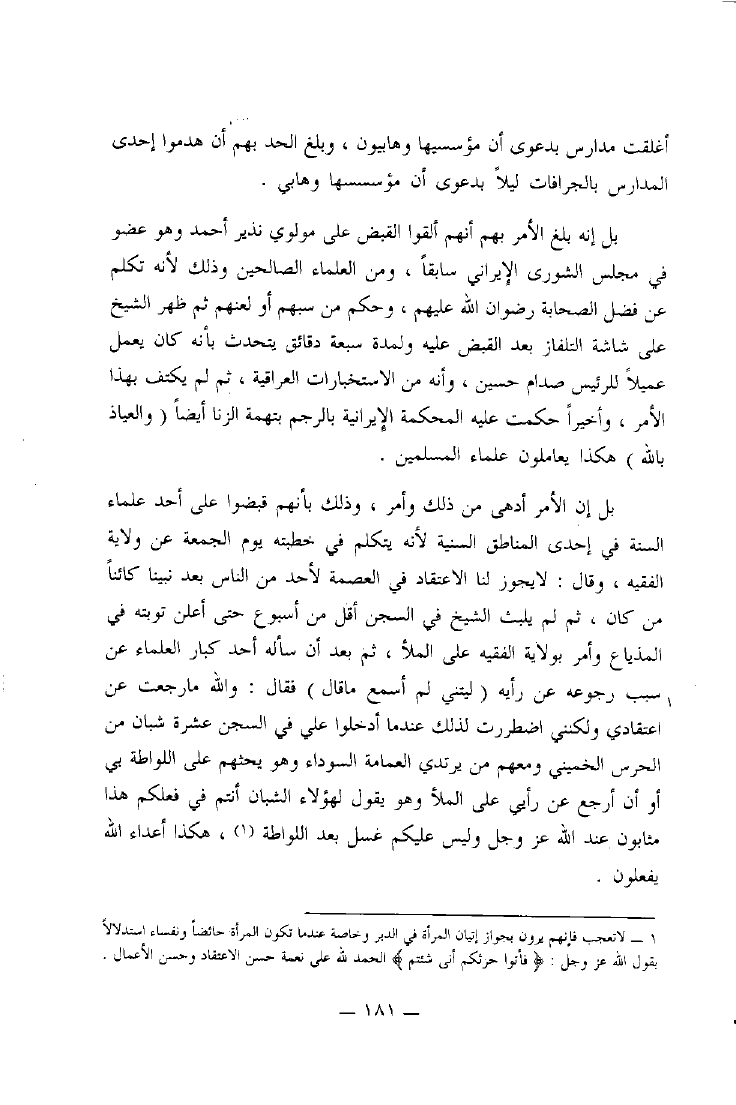 أغلقت مدارس بدعوى أن مؤسسيها وهابيون ، وبلغ الحد بهم أن هدموا إحدى
المدارس بالجرافات ليلاً بدعوى أن مؤسسسها وهابي .
بل إنه بلغ الأمر بهم أنهم ألقوا القبض على مولوي نذير أحمد وهو عضو
في مجلس الشورى الإيراني سابقاً ، ومن العلماء الصالحين وذلك لأنه تكلم
عن فضل الصحابة رضوان الله عليهم ، وحكم من سبهم أو لعنهم ثم ظهر الشيخ
على شاشة التلفاز بعد القبض عليه ولمدة سبعة دقائق يتحدث بأنه كان يعمل
عميلاً للرئيس صدام حسين ، وأنه من الاستخبارات العراقية ، ثم لم يكتف بهذا
الأمر ، وأخيراً حكمت عليه المحكمة الإيرانية بالرجم بتهمة الزنا أيضاً ( والعياذ
بالله ) هكذا يعاملون علماء المسلمين .
بل إن الأمر أدهى من ذلك وأمر ، وذلك بأنهم قبضوا على أحد علماء
السنة في إحدى المناطق السنية لأنه يتكلم في خطبته يوم الجمعة عن ولاية
الفقيه ، وقال : لايجوز لنا الاعتقاد في العصمة لأحد من الناس بعد نبينا كائناً
من كان ، ثم لم يلبث الشيخ في السجن أقل من أسبوع حتى أعلن توبته في
المذياع وأمر بولاية الفقيه على الملأ ، ثم بعد أن سأله أحد كبار العلماء عن
سبب رجوعه عن رأيه ( ليتني لم أسمع ماقال ) فقال : والله مارجعت عن
اعتقادي ولكنني اضطررت لذلك عندما أدخلوا علي في السجن عشرة شبان من
الحرس الخميني ومعهم من يرتدي العمامة السوداء وهو يحثهم على اللواطة بي
أو أن أرجع عن رأيي على الملأ وهو يقول لهؤلاء الشبان أنتم في فعلكم هذا
مثابون عند الله عز وجل وليس عليكم غسل بعد اللواطة (١) ، هكذا أعداء الله
يفعلون .
١ ــ لاتعجب فإنهم يرون بجواز إتيان المرأة في الدبر وخاصة عندما تكون المرأة حائضاً ونفساء استدلالاً
بقول الله عز وجل : ﴿ فأتوا حرثكم أنى شئتم ﴾ الحمد لله على نعمة حسن الاعتقاد وحسن الأعمال .
ــ ١٨١ ــ